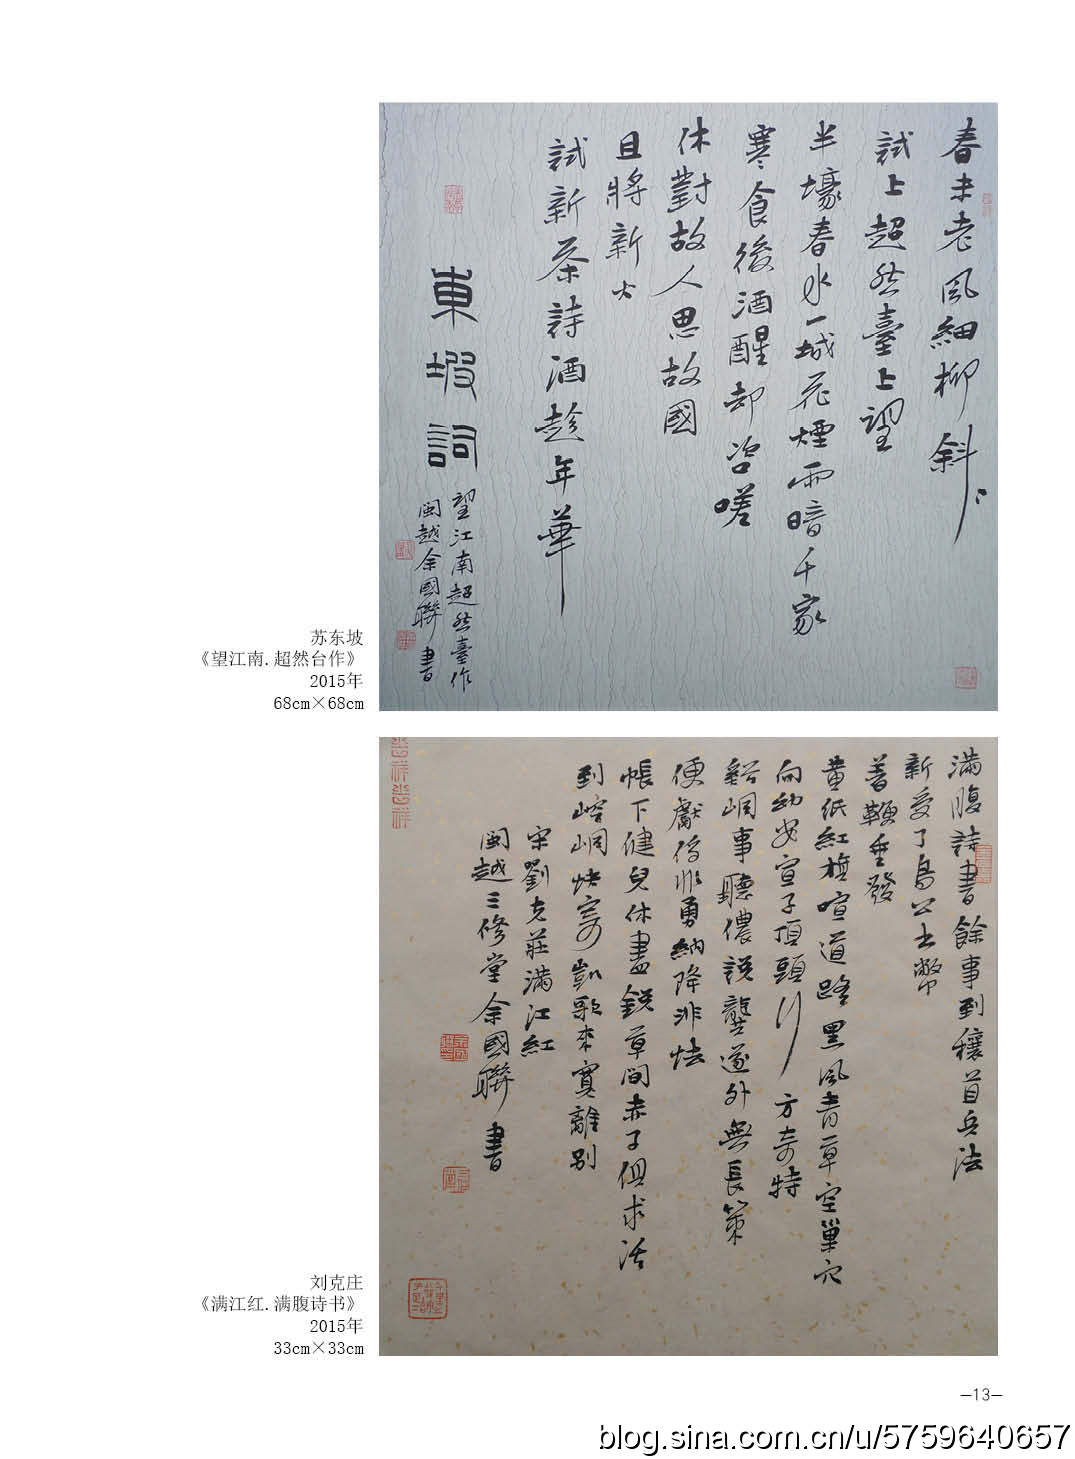 春未老風細柳斜〻
試上超然臺上望
半壕春水一城花煙雨暗千家
寒食後酒醒却咨嗟
休對故人思故國
且將新火
試新茶詩酒趁年華
東坡詞
望江南超然臺作
閩越余國聯書
苏东坡
《望江南.超然台作》
2015年
68cm×68cm
滿腹詩書餘事到穰苴兵法
新受了烏公士幣
著鞭垂發
黄紙紅旗喧道路黑風青草空巢穴
向幼安宣子頂頭行方奇特
谿峒事聽儂説龔遂外無長策
便獻俘非勇納降非怯
帳下健兒休盡鋭草間赤子俱求活
到崆峒快寄凱歌来寬離别
宋劉克莊滿江紅
閩越三修堂余國聯書
刘克庄
《满江红.满腹诗书》
2015年
33cm×33cm
—13—
blog.sina.com.cn/u/5759640657